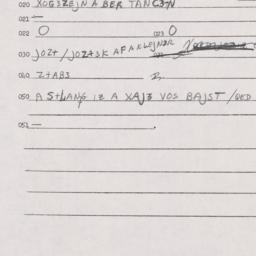 020 XOGSZEJN A BER TANCZN
021 —
022 O 023 O
030 JOZT / JOZTSK AFAKLEJNER
040 ZTABS
050 A STLANG IZ A XAJZ VOS BAJST / QED
051 —